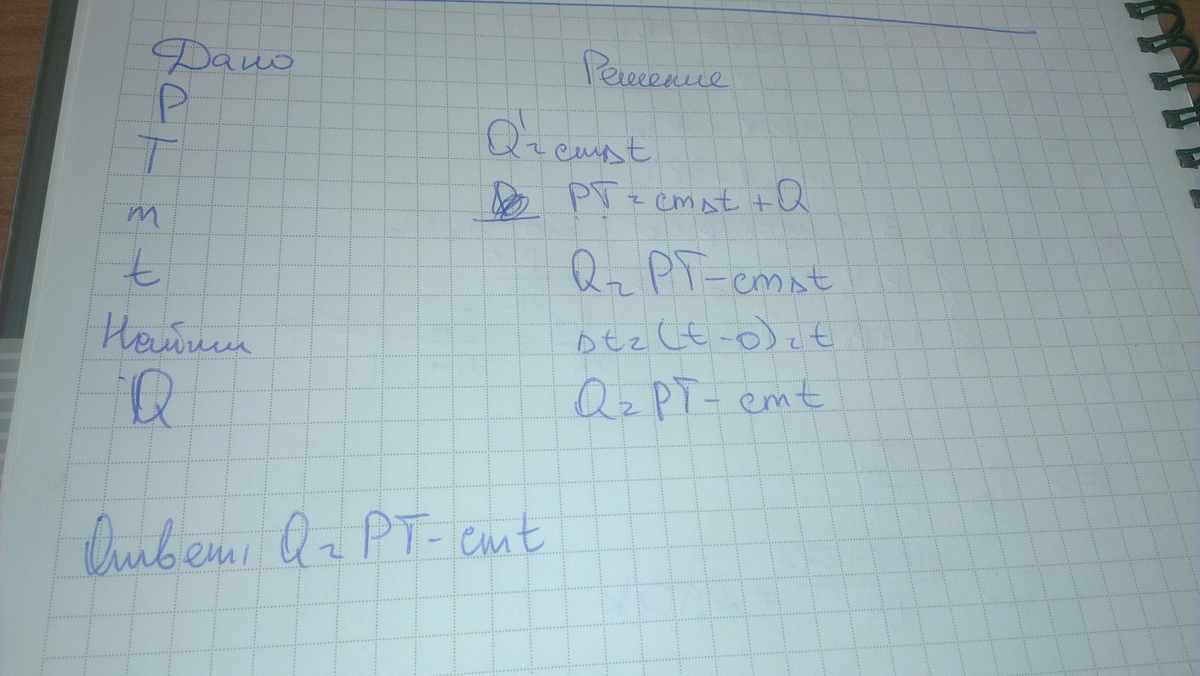 Дано
P
T
m
t
Найти
Q
Решение
Q' = cm∆t
PT = cm∆t + Q
Q = PT - cm∆t
∆t = (t - 0) = t
Q = PT - cmt
Ответ: Q = PT - cmt